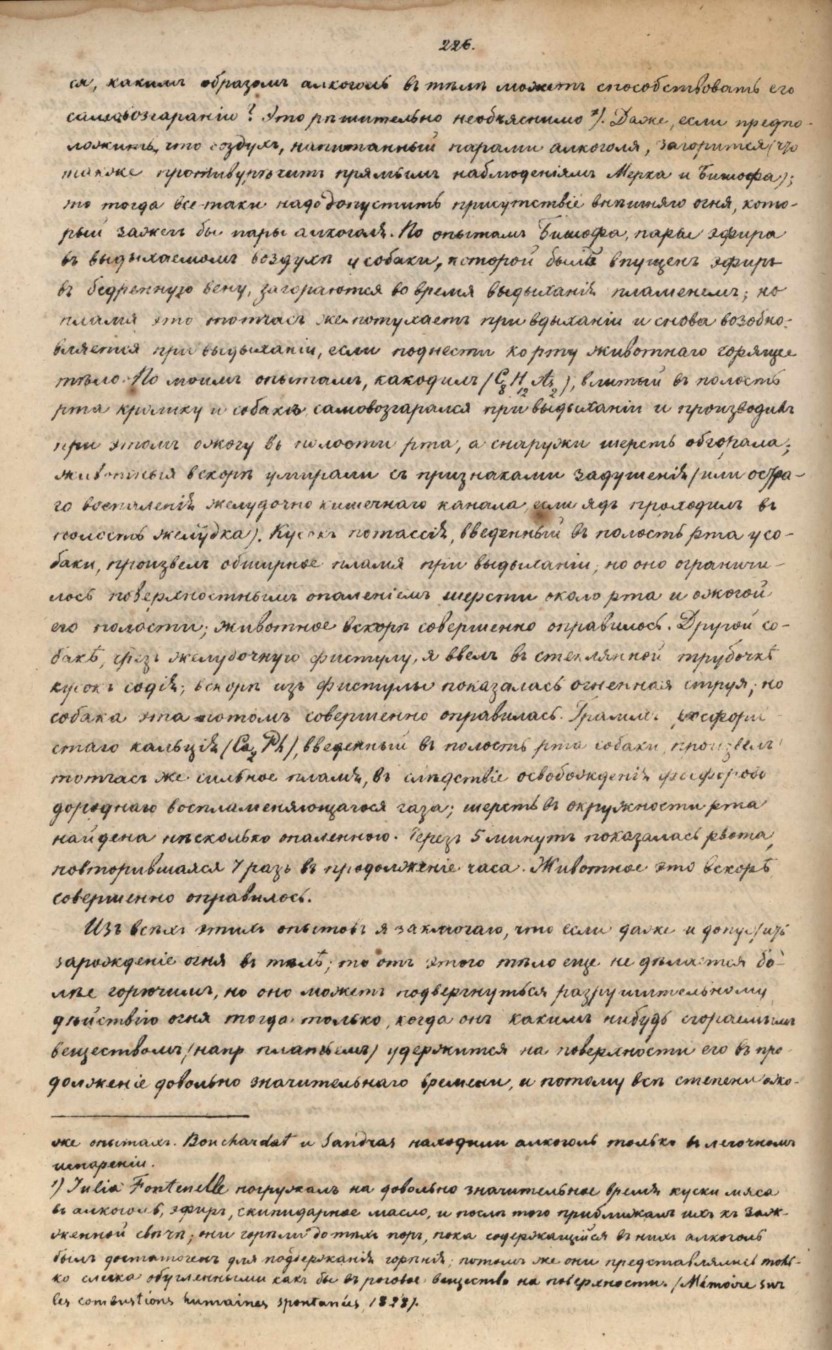 226.
ся, какимъ образомъ алкоголь въ тѣлѣ можетъ способствовать его
самовозгаранію? Это рѣшительно необъяснимо ¹). Даже, если предпо-
ложить, что воздухъ, напитанный парами алкоголя, загорится (что
также противурѣчитъ прямымъ наблюденіямъ Мерка и Бишофа);
то тогда все таки надо допустить присутствіе внѣшняго огня, кото-
рый зажегъ бы пары алкоголя. По опытамъ Бишофа, пары эфира
въ выдыхаемомъ воздухѣ у собаки, которой былъ впущенъ эфиръ
въ бедренную вену, загораются во время выдыханія пламенемъ; но
пламя это тотчасъ же потухаетъ при вдыханіи и снова возобно-
вляется при выдыханіи, если поднести ко рту животнаго горящее
тѣло. По моимъ опытамъ, какодилъ (C₈ H₁₂ As₂), влитый въ полость
рта кролику и собакѣ самовозгарался при выдыханіи и производилъ
при этомъ ожогу въ полости рта, а снаружи шерсть обгорала;
животныя вскорѣ умирали съ признаками задушенія (или остра-
го воспаленія желудочно кишечнаго канала если ядъ проходилъ въ
полость желудка). Кусокъ потассія, введенный въ полость рта у со-
баки, произвелъ обширное пламя при выдыханіи, но оно ограничи-
лось поверхностнымъ опаленіемъ шерсти около рта и ожогой
его полости; животное вскорѣ совершенно оправилось. Другой со-
бакѣ, чрезъ желудочную фистулу, я ввелъ въ стеклянной трубочкѣ
кусокъ содія; вскорѣ изъ фистулы показалась огненная струя; но
собака эта потомъ совершенно оправилась. Граммъ фосфори
стаго кальція (Ca₂ Ph), введенный въ полость рта собаки, произвелъ
тотчасъ же сильное пламя, въ слѣдствіе освобожденія фосфорово
дороднаго воспламеняющагося газа; шерсть въ окружности рта
найдена нѣсколько опаленною. Черезъ 5 минутъ показалась рвота,
повторившаяся 7 разъ въ продолженіе часа. Животное это вскорѣ
совершенно оправилось.
Изъ всѣхъ этихъ опытовъ я заключаю, что если даже и допустить
зарожденіе огня въ тѣлѣ; то отъ этого тѣло еще не дѣлается бо-
лѣе горючимъ, но оно можетъ подвергнуться разрушительному
дѣйствію огня тогда только, когда онъ какимъ нибудь сгораемымъ
веществомъ (напр платьемъ) удержится на поверхности его въ про-
долженіе довольно значительнаго времени, и потому всѣ степени ожо-
же опытахъ. Bouchardat и Sandras находили алкоголь только въ легочномъ
испареніи.
¹) Julia Fontenelle погружалъ на довольно значительное время куски мяса
въ алкоголь, эфиръ, скипидарное масло, и послѣ того приближалъ ихъ къ заж-
женной свѣчѣ; они горѣли до тѣхъ поръ, пока содержащійся въ нихъ алкоголь
былъ достаточенъ для поддержанія горѣнія; потомъ же они представлялись толь-
ко слегка обугленными какъ бы въ роговое вещество на поверхности. (Mémoire sur
les combustions humaines spontanées 1828).